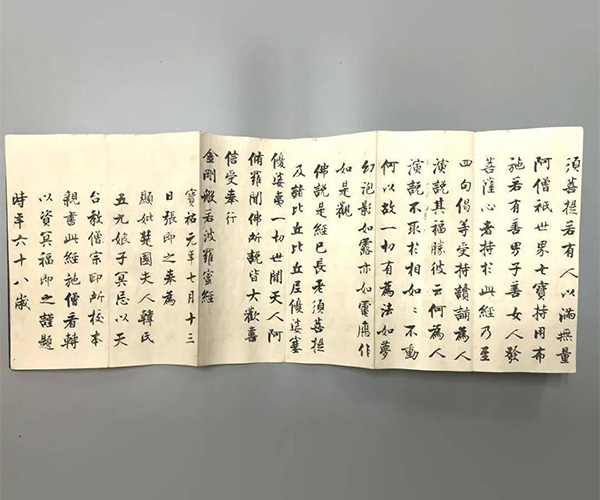 須菩提若有人以滿無量
阿僧祇世界七寶持用布
施若有善男子善女人發
菩薩心者持於此經乃至
四句偈等受持讀誦為人
演說其福勝彼云何為人
演說不取於相如〻不動
何以故一切有為法如夢
幻泡影如露亦如電應作
如是觀
佛說是經已長老須菩提
及諸比丘比丘尼優婆塞
優婆夷一切世間天人阿
脩羅聞佛所說皆大歡喜
信受奉行
金剛般若波羅蜜經
寶祐元年七月十三
日張即之奉為
顯妣楚國夫人韓氏
五九娘子冥忌以天
台教僧宗印所校本
親書此經施僧看轉
以資冥福即之謹題
時年六十八歲